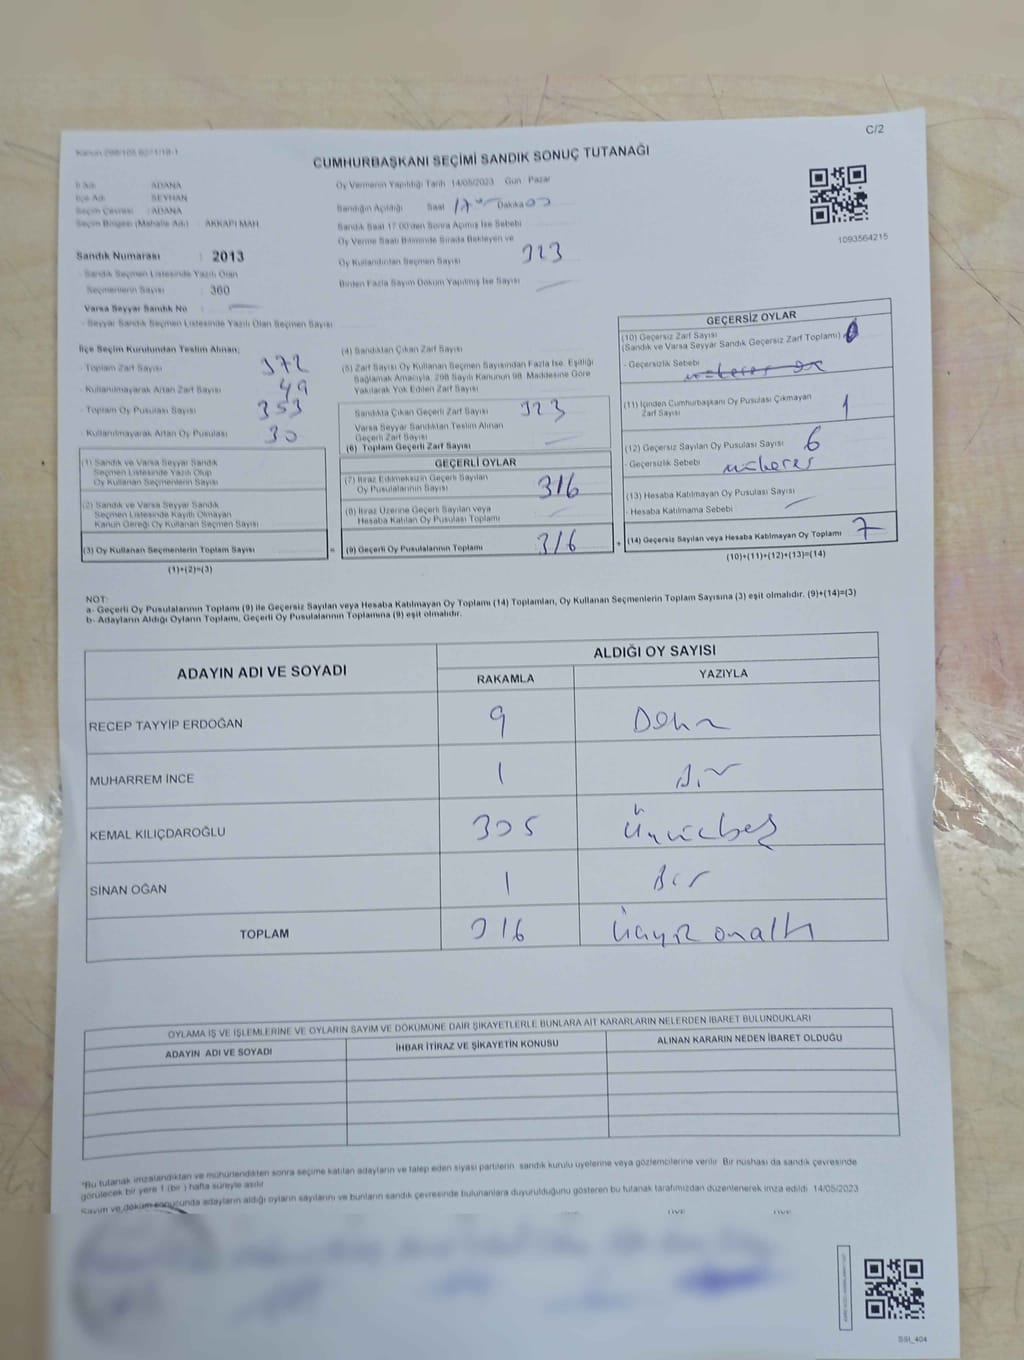 C/2
CUMHURBAŞKANI SEÇİMİ SANDIK SONUÇ TUTANAĞI
İl Adı : ADANA
İlçe Adı : SEYHAN
Seçim Çevresi : ADANA
Seçim Bölgesi (Mahalle Adı) : AKKAPI MAH.
Sandık Numarası : 2013
- Sandık Seçmen Listesinde Yazılı Olan
Seçmenlerin Sayısı : 360
Varsa Seyyar Sandık No :
- Seyyar Sandık Seçmen Listesinde Yazılı Olan Seçmen Sayısı
Oy Vermenin Yapıldığı Tarih 14/05/2023 Gün : Pazar
Sandığın Açıldığı Saat 17 Dakika 00
Sandık Saat 17:00'den Sonra Açılmış İse Sebebi
Oy Verme Saati Bitiminde Sırada Bekleyen ve
Oy Kullandırılan Seçmen Sayısı 323
Birden Fazla Sayım Döküm Yapılmış İse Sayısı
1093564215
İlçe Seçim Kurulundan Teslim Alınan;
- Toplam Zarf Sayısı 372
- Kullanılmayarak Artan Zarf Sayısı 49
- Toplam Oy Pusulası Sayısı 353
- Kullanılmayarak Artan Oy Pusulası 30
(1) Sandık ve Varsa Seyyar Sandık
Seçmen Listesinde Yazılı Olup
Oy Kullanan Seçmenlerin Sayısı
(2) Sandık ve Varsa Seyyar Sandık
Seçmen Listesinde Kayıtlı Olmayan
Kanun Gereği Oy Kullanan Seçmen Sayısı
(3) Oy Kullanan Seçmenlerin Toplam Sayısı
(1)+(2)=(3)
(4) Sandıktan Çıkan Zarf Sayısı
(5) Zarf Sayısı Oy Kullanan Seçmen Sayısından Fazla İse, Eşitliği
Sağlamak Amacıyla, 298 Sayılı Kanunun 98. Maddesine Göre
Yakılarak Yok Edilen Zarf Sayısı
Sandıkta Çıkan Geçerli Zarf Sayısı 323
Varsa Seyyar Sandıktan Teslim Alınan
Geçerli Zarf Sayısı
(6) Toplam Geçerli Zarf Sayısı
GEÇERLİ OYLAR
(7) İtiraz Edilmeksizin Geçerli Sayılan
Oy Pusulalarının Sayısı 316
(8) İtiraz Üzerine Geçerli Sayılan veya
Hesaba Katılan Oy Pusulası Toplamı
= (9) Geçerli Oy Pusulalarının Toplamı 316
GEÇERSİZ OYLAR
(10) Geçersiz Zarf Sayısı
(Sandık ve Varsa Seyyar Sandık Geçersiz Zarf Toplamı)
- Geçersizlik Sebebi
(11) İçinden Cumhurbaşkanı Oy Pusulası Çıkmayan
Zarf Sayısı 1
(12) Geçersiz Sayılan Oy Pusulası Sayısı 6
- Geçersizlik Sebebi
(13) Hesaba Katılmayan Oy Pusulası Sayısı
- Hesaba Katılmama Sebebi
+ (14) Geçersiz Sayılan veya Hesaba Katılmayan Oy Toplamı 7
(10)+(11)+(12)+(13)=(14)
NOT:
a- Geçerli Oy Pusulalarının Toplamı (9) ile Geçersiz Sayılan veya Hesaba Katılmayan Oy Toplamı (14) Toplamları, Oy Kullanan Seçmenlerin Toplam Sayısına (3) eşit olmalıdır. (9)+(14)=(3)
b- Adayların Aldığı Oyların Toplamı, Geçerli Oy Pusulalarının Toplamına (9) eşit olmalıdır.
ADAYIN ADI VE SOYADI
ALDIĞI OY SAYISI
RAKAMLA YAZIYLA
RECEP TAYYİP ERDOĞAN 9
MUHARREM İNCE 1 Bir
KEMAL KILIÇDAROĞLU 305 Üçyüzbeş
SİNAN OĞAN 1 Bir
TOPLAM 316 Üçyüz onaltı
OYLAMA İŞ VE İŞLEMLERİNE VE OYLARIN SAYIM VE DÖKÜMÜNE DAİR ŞİKAYETLERLE BUNLARA AİT KARARLARIN NELERDEN İBARET BULUNDUKLARI
ADAYIN ADI VE SOYADI İHBAR İTİRAZ VE ŞİKAYETİN KONUSU ALINAN KARARIN NEDEN İBARET OLDUĞU
*Bu tutanak imzalandıktan ve mühürlendikten sonra seçime katılan adayların ve talep eden siyasi partilerin sandık kurulu üyelerine veya gözlemcilerine verilir. Bir nüshası da sandık çevresinde
görülecek bir yere 1 (bir ) hafta süreyle asılır.
Sayım ve döküm sonucunda adayların aldığı oyların sayılarını ve bunların sandık çevresinde bulunanlara duyurulduğunu gösteren bu tutanak tarafımızdan düzenlenerek imza edildi. 14/05/2023
SSI_404